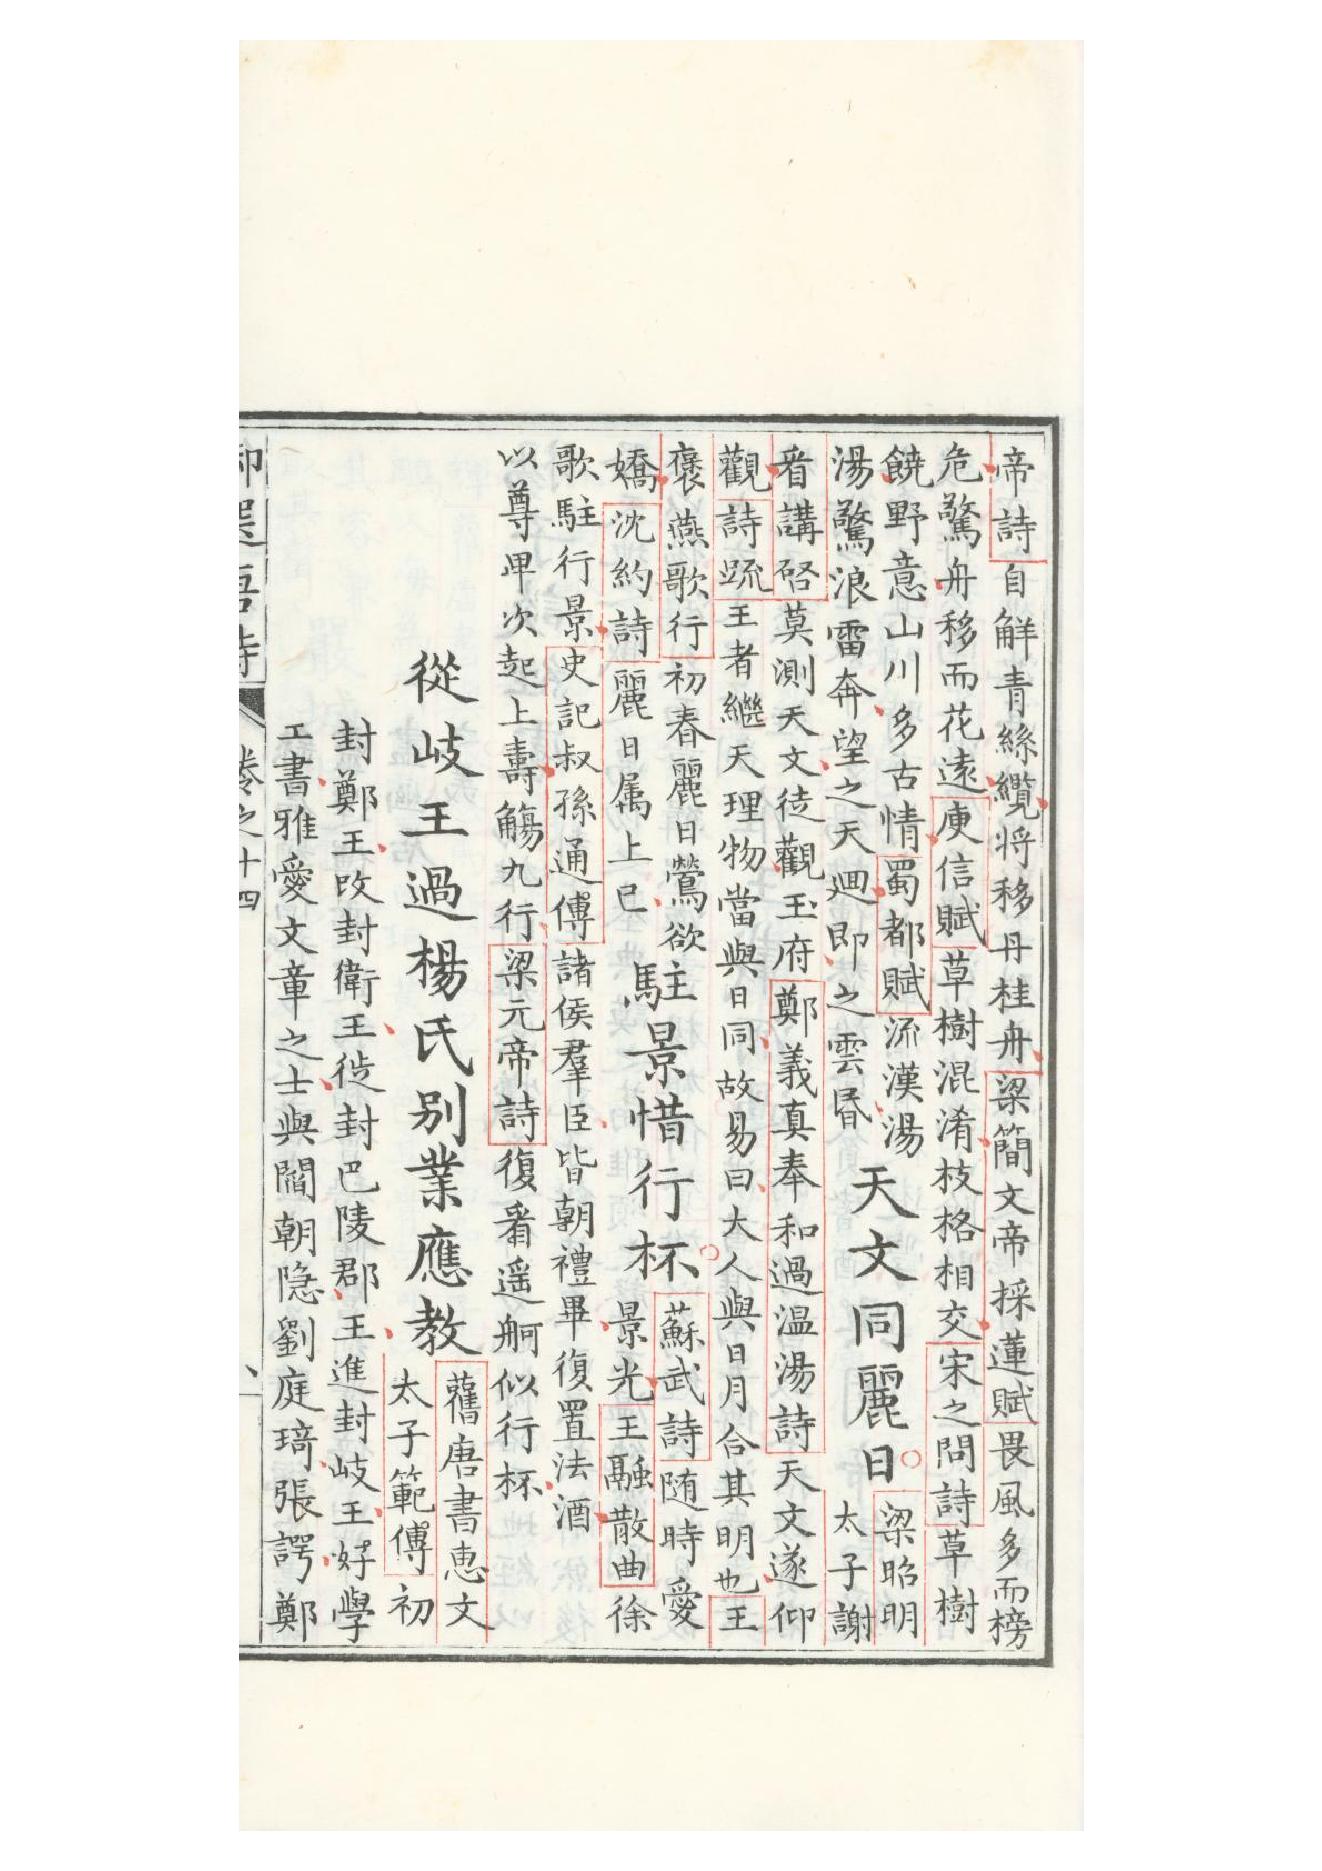 帝詩自解青絲纜將移丹桂舟梁簡文帝採蓮賦畏風多而榜
危驚舟移而花遠庾信賦草樹混淆枝格相交宋之問詩草樹
饒野意山川多古情蜀都賦流漢湯
湯驚浪雷奔望之天迴即之雲昏
天文同麗日
梁昭明
太子謝
㸔講啓莫測天文徒觀玉府鄭義真奉和過温湯詩天文遂仰
觀詩疏王者繼天理物當與日同故易曰大人與日月合其明也王
褒燕歌行初春麗日鶯欲
嬌沈約詩麗日属上巳
駐景惜行杯
蘇武詩随時愛
景光王融散曲徐
歌駐行景史記叔孫通傳諸侯羣臣皆朝禮畢復置法酒
以尊卑次起上壽觴九行梁元帝詩復㸔遥舸似行杯
從岐王過楊氏别業應教
舊唐書惠文
太子範傳初
封鄭王改封衛王徙封巴陵郡王進封岐王好學
工書雅愛文章之士與閻朝隐劉庭琦張諤鄭
御選唐詩 卷之十四